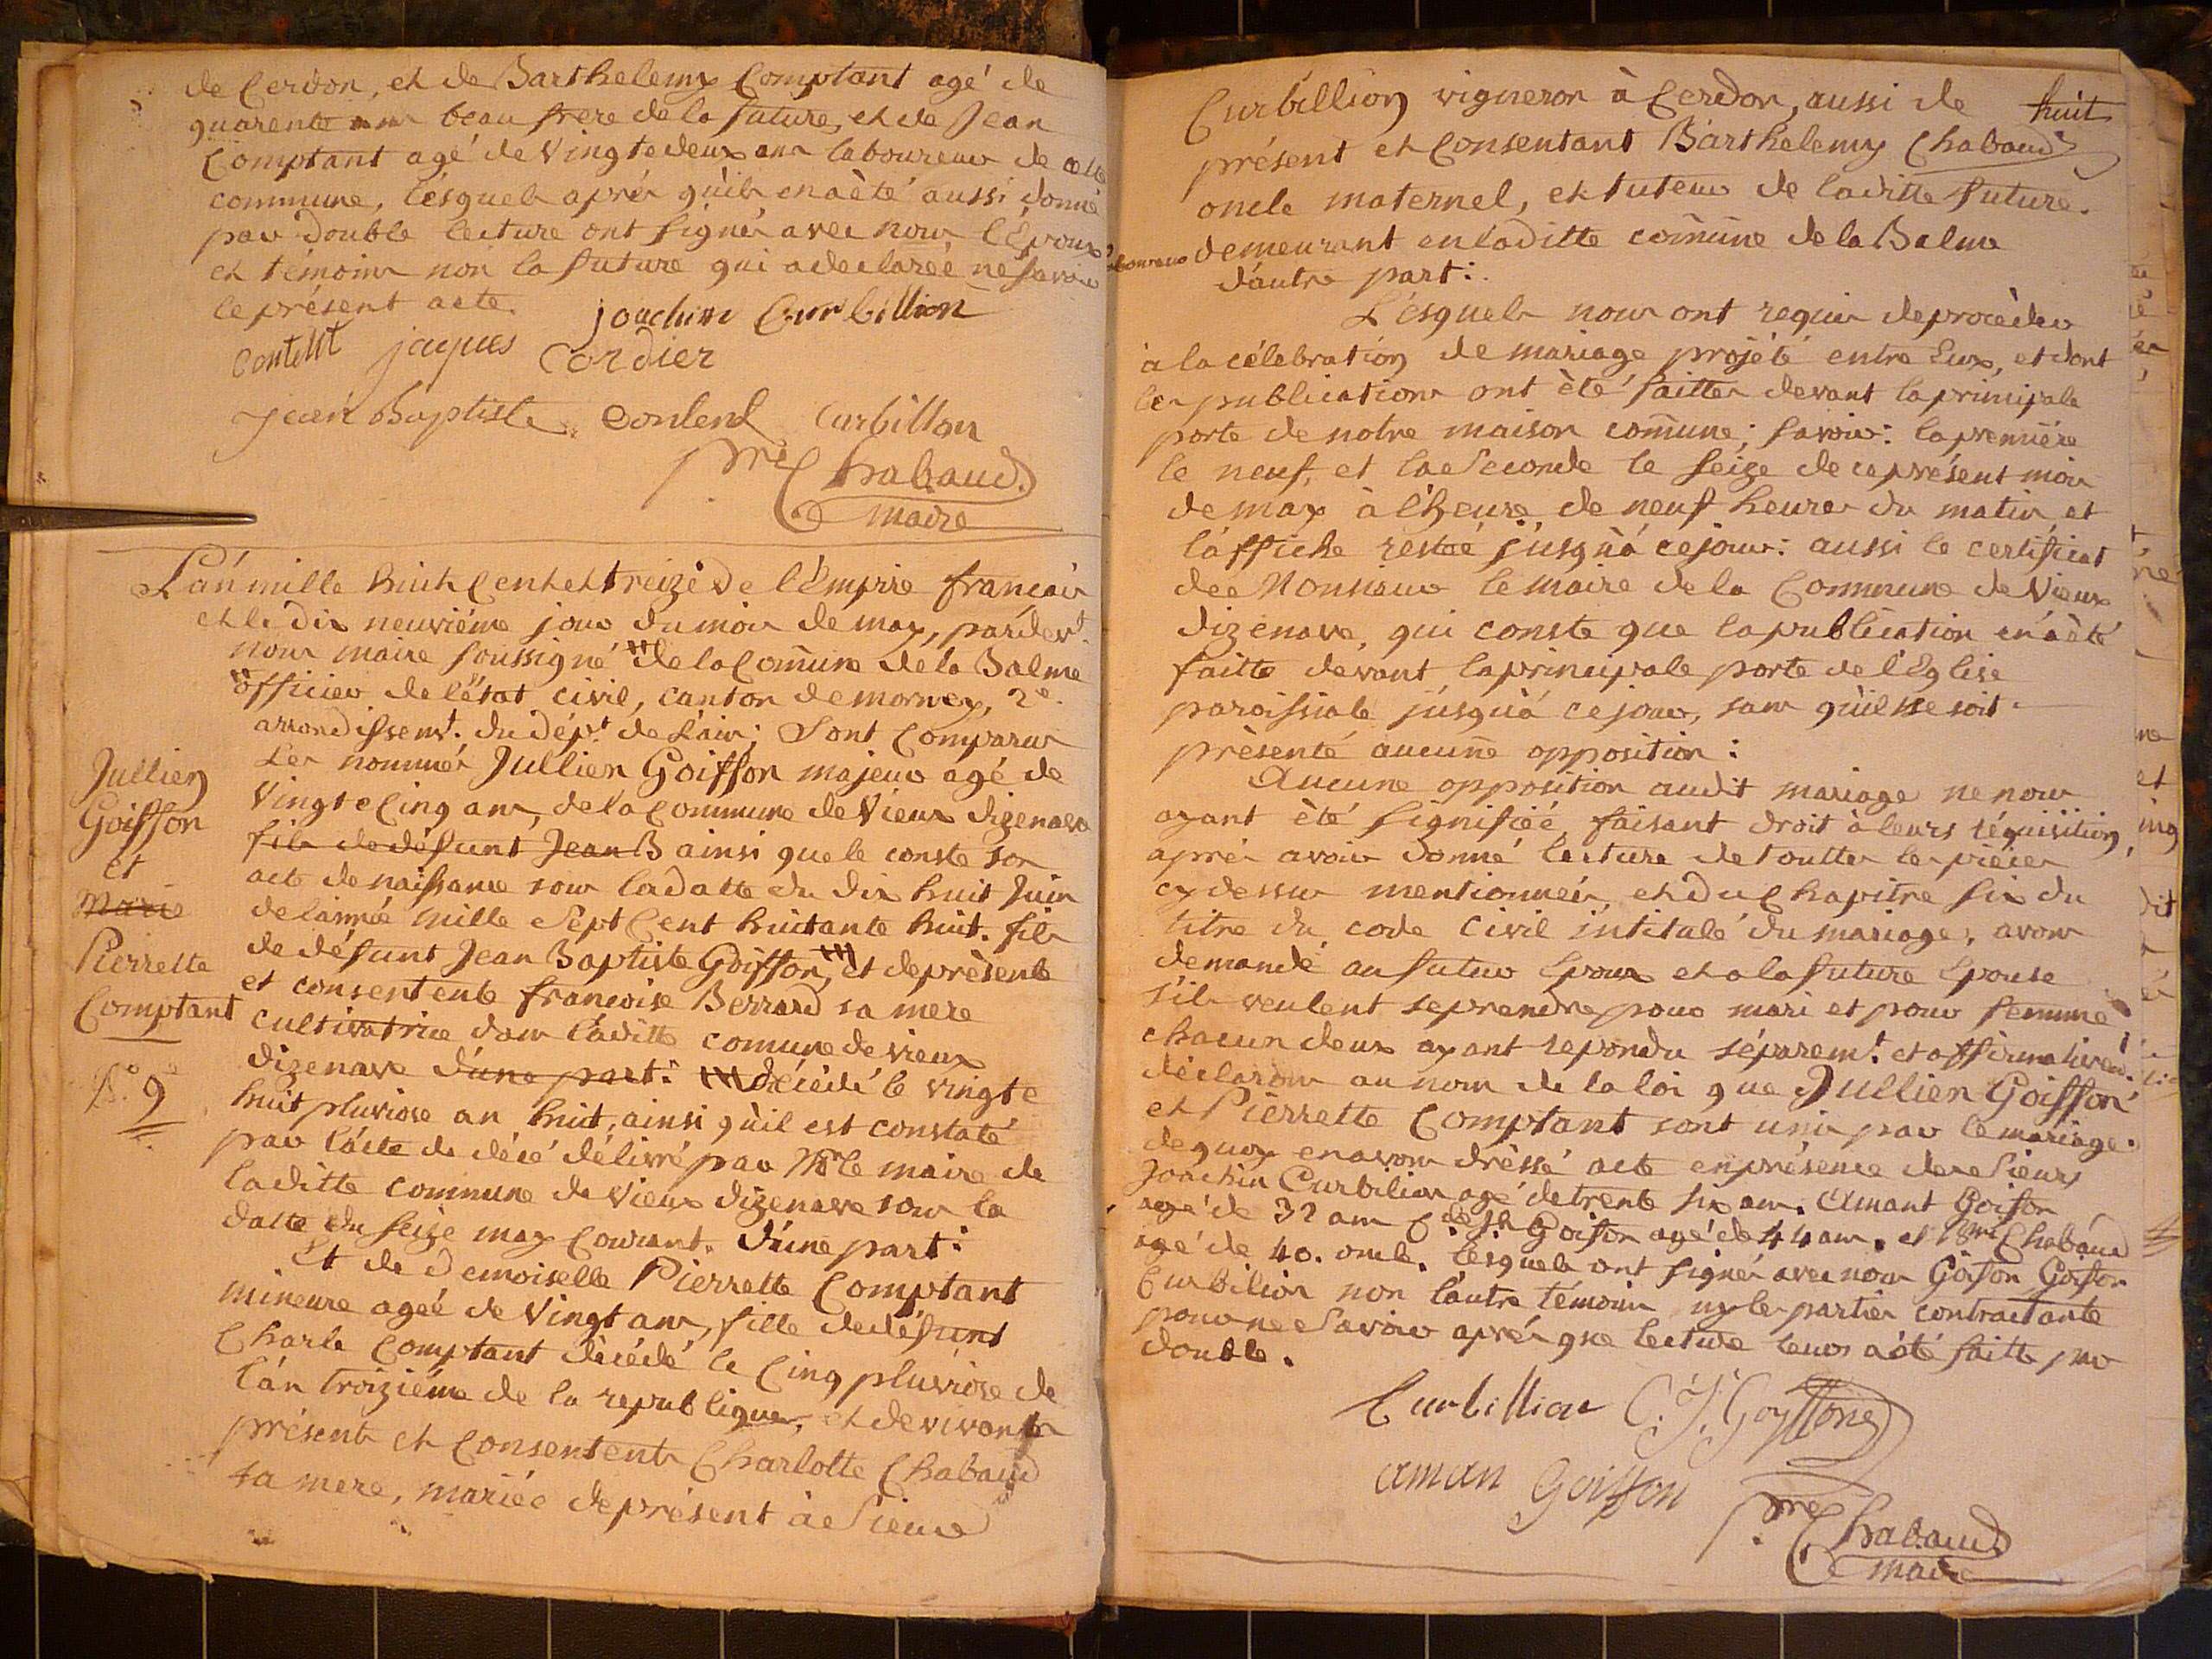 de Cerdon, et de Barthelemy Comptant agé de
quarente ans beau frere de la future, et de Jean
Comptant agé de Vingtedeux ans laboureur de cette
commune, lésquels aprés qùils en a èté aussi donné
par double lecture ont signés avec nous l'Époux
et témoins non la future qui a declareé ne savoir
le présent acte.
joachim Curbillion
Contest jaques Cordier
Jean Baptiste Contend Curbillon
Pre Chabaud
maire
L'an mille huit Cent et treize de l'Empire françois
et le dix neuviéme jour du mois de may, pardevt.
nous maire soussigné de la Comune de la Balme
officier de l'état civil, canton de mornay, 2e.
arrondissemt. du dépt. de L'ain; Sont Comparus
Les nommés Jullien Goiffon majeur agé de
Vingt e Cinq ans, de la Commune de Vieux dizenave
fils de défunt Jean B ainsi que le conste son
acte de naissance sous la datte du dix huit Juin
de l'année mille Sept Cent huitante huit. fils
de défunt Jean Baptiste Goiffon, et de prèsente
et consentente francoise Berrard sa mere
cultivatrice dans laditte comune de vieux
dizenave d'une part: décédé le vingte
huit pluviose an huit, ainsi qùil est constaté
par l'acte de décé délivré par Mr le maire de
laditte commune de Vieux dizenave sous la
datte du seize may Courant. d'une part:
Et de demoiselle Pierrette Comptant
mineure ageé de Vingt ans, fille de défunt
Charle Comptant dècédé le Cinq pluviose de
l'an troiziéme de la republique, et de vivante
présente et Consentente Charlotte Chabaud
sa mere, mariéé de présent à Sieur
Jullien
Goiffon
et
Marie
Pierrette
Comptant
N.o 9
huit
Curbillion vigneron à Cerdon, aussi de
présent et Consentant Barthelemy Chabaud
oncle maternel, et tuteur de laditte future.
laboureur demeurant en laditte comune de la Balme
d'autre part:
Lésquels nous ont requis de procéder
à la célebration de mariage projété entre Eux, et dont
les publications ont èté faittes devant la principale
porte de notre maison comune; savoir: la premiére
le neuf, et la Seconde le seize de ce présent mois
de may à l'heure de neuf heures du matin, et
l'affiche resteé jusqu'à ce jour: aussi le certificat
de Monsieur le maire de la Commune de Vieux
dizenave, qui conste que la publication en a èté
faitte devant la principale porte de l'Eglise
paroissiale jusqu'à ce jour, sans qùil ne soit
prèsenté aucune opposition:
Aucune opposition audit mariage ne nous
ayant èté signifiéé, faisant droit à leurs réquisition,
aprés avoir donné lecture de touttes les piéces
cy dessus mentionneés, et du Chapitre six du
titre du code Civil intitulé du mariage, avons
demandé au futur Epoux et a la future Epouse
s'ils veulent se prendre pour mari et pour femme
chacun deux ayant repondu séparemt. et affirmativemt.
déclarons au nom de la loi que Jullien Goiffon
et Pierrette Comptant sont unis par le mariage.
de quoy en avons dressé acte en présence de Sieurs
Joachin Curbilion agé de trente six ans. Amant Goifon
agé de 32 ans Cde Jh Goifon agé de 44 ans. et Bmi Chabaud
agé de 40. oncle. lésquels ont signés avec nous Goifon Goifon
Curbilion non l'autre témoin ny les parties contractante
pour ne Savoir aprés que lecture leurs a èté faitte par
double.
Curbillion C. J. Goyffone
aman Goiffon
Pre Chabaud
maire